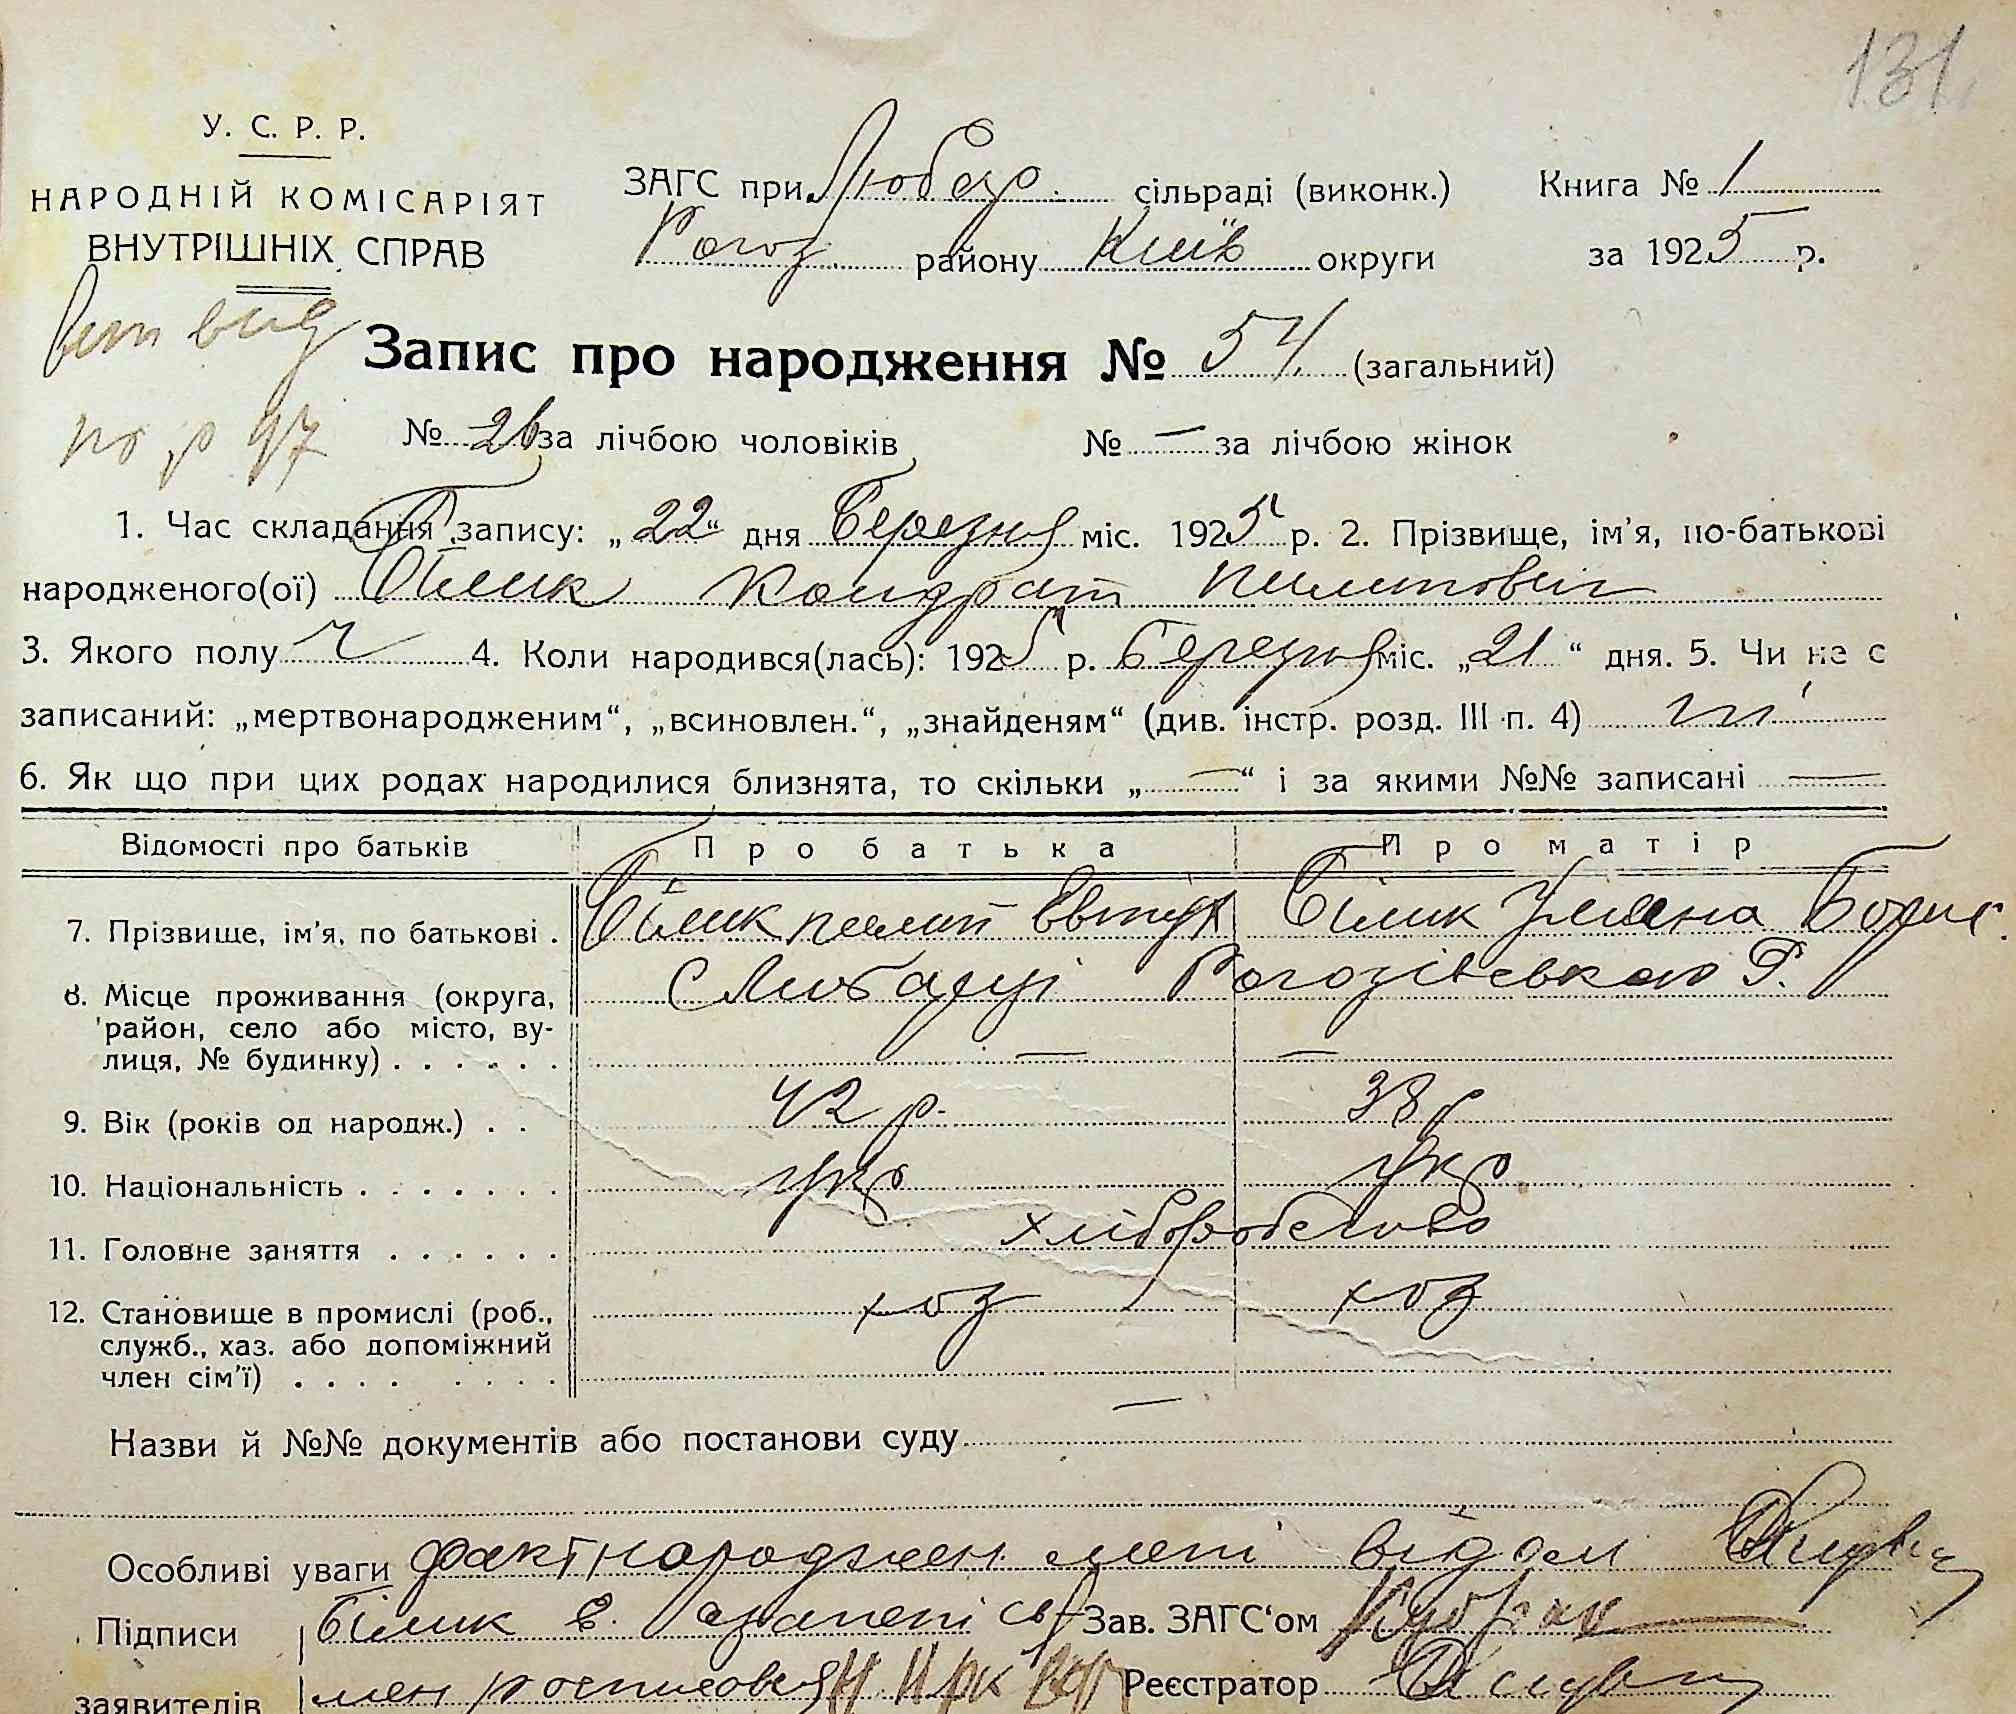 131
У. С. Р. Р.
НАРОДНІЙ КОМІСАРІЯТ
ВНУТРІШНІХ СПРАВ
ЗАГС при Любар. сільраді (виконк.)
Рогоз. району Київ округи
Книга № 1
за 1925 р.
вид
Запис про народження № 54. (загальний)
по р 97
№ 26 за лічбою чоловіків № — за лічбою жінок
1. Час складання запису: „22“ дня Березня міс. 1925 р. 2. Прізвище, ім'я, по-батькові
народженого(ої) Білик Кондрат Пилипович
3. Якого полу ч 4. Коли народився(лась): 1925 р. Березня міс. „21“ дня. 5. Чи не є
записаний: „мертвонародженим“, „всиновлен.“, „знайденям“ (див. інстр. розд. III п. 4) ні
6. Як що при цих родах народилися близнята, то скільки „—“ і за якими №№ записані —
Відомості про батьків Про батька Про матір
7. Прізвище, ім'я, по батькові . Білик Пилип Евтух Білик Уляна Борис.
8. Місце проживання (округа, район, село або місто, ву-
лиця, № будинку) . . . . . . с Любарці Рогозівського Р.
— —
9. Вік (років од народж.) . . 42 р. 38 р
10. Національність . . . . . . . укр укр
11. Головне заняття . . . . . . хліборобство
12. Становище в промислі (роб.,
служб., хаз. або допоміжний
член сім'ї) . . . . . . . . хоз хоз
Назви й №№ документів або постанови суду —
Особливі уваги факт народжен мені відом
Підписи Білик Е. Зав. ЗАГС‘ом
заявителів Реєстратор